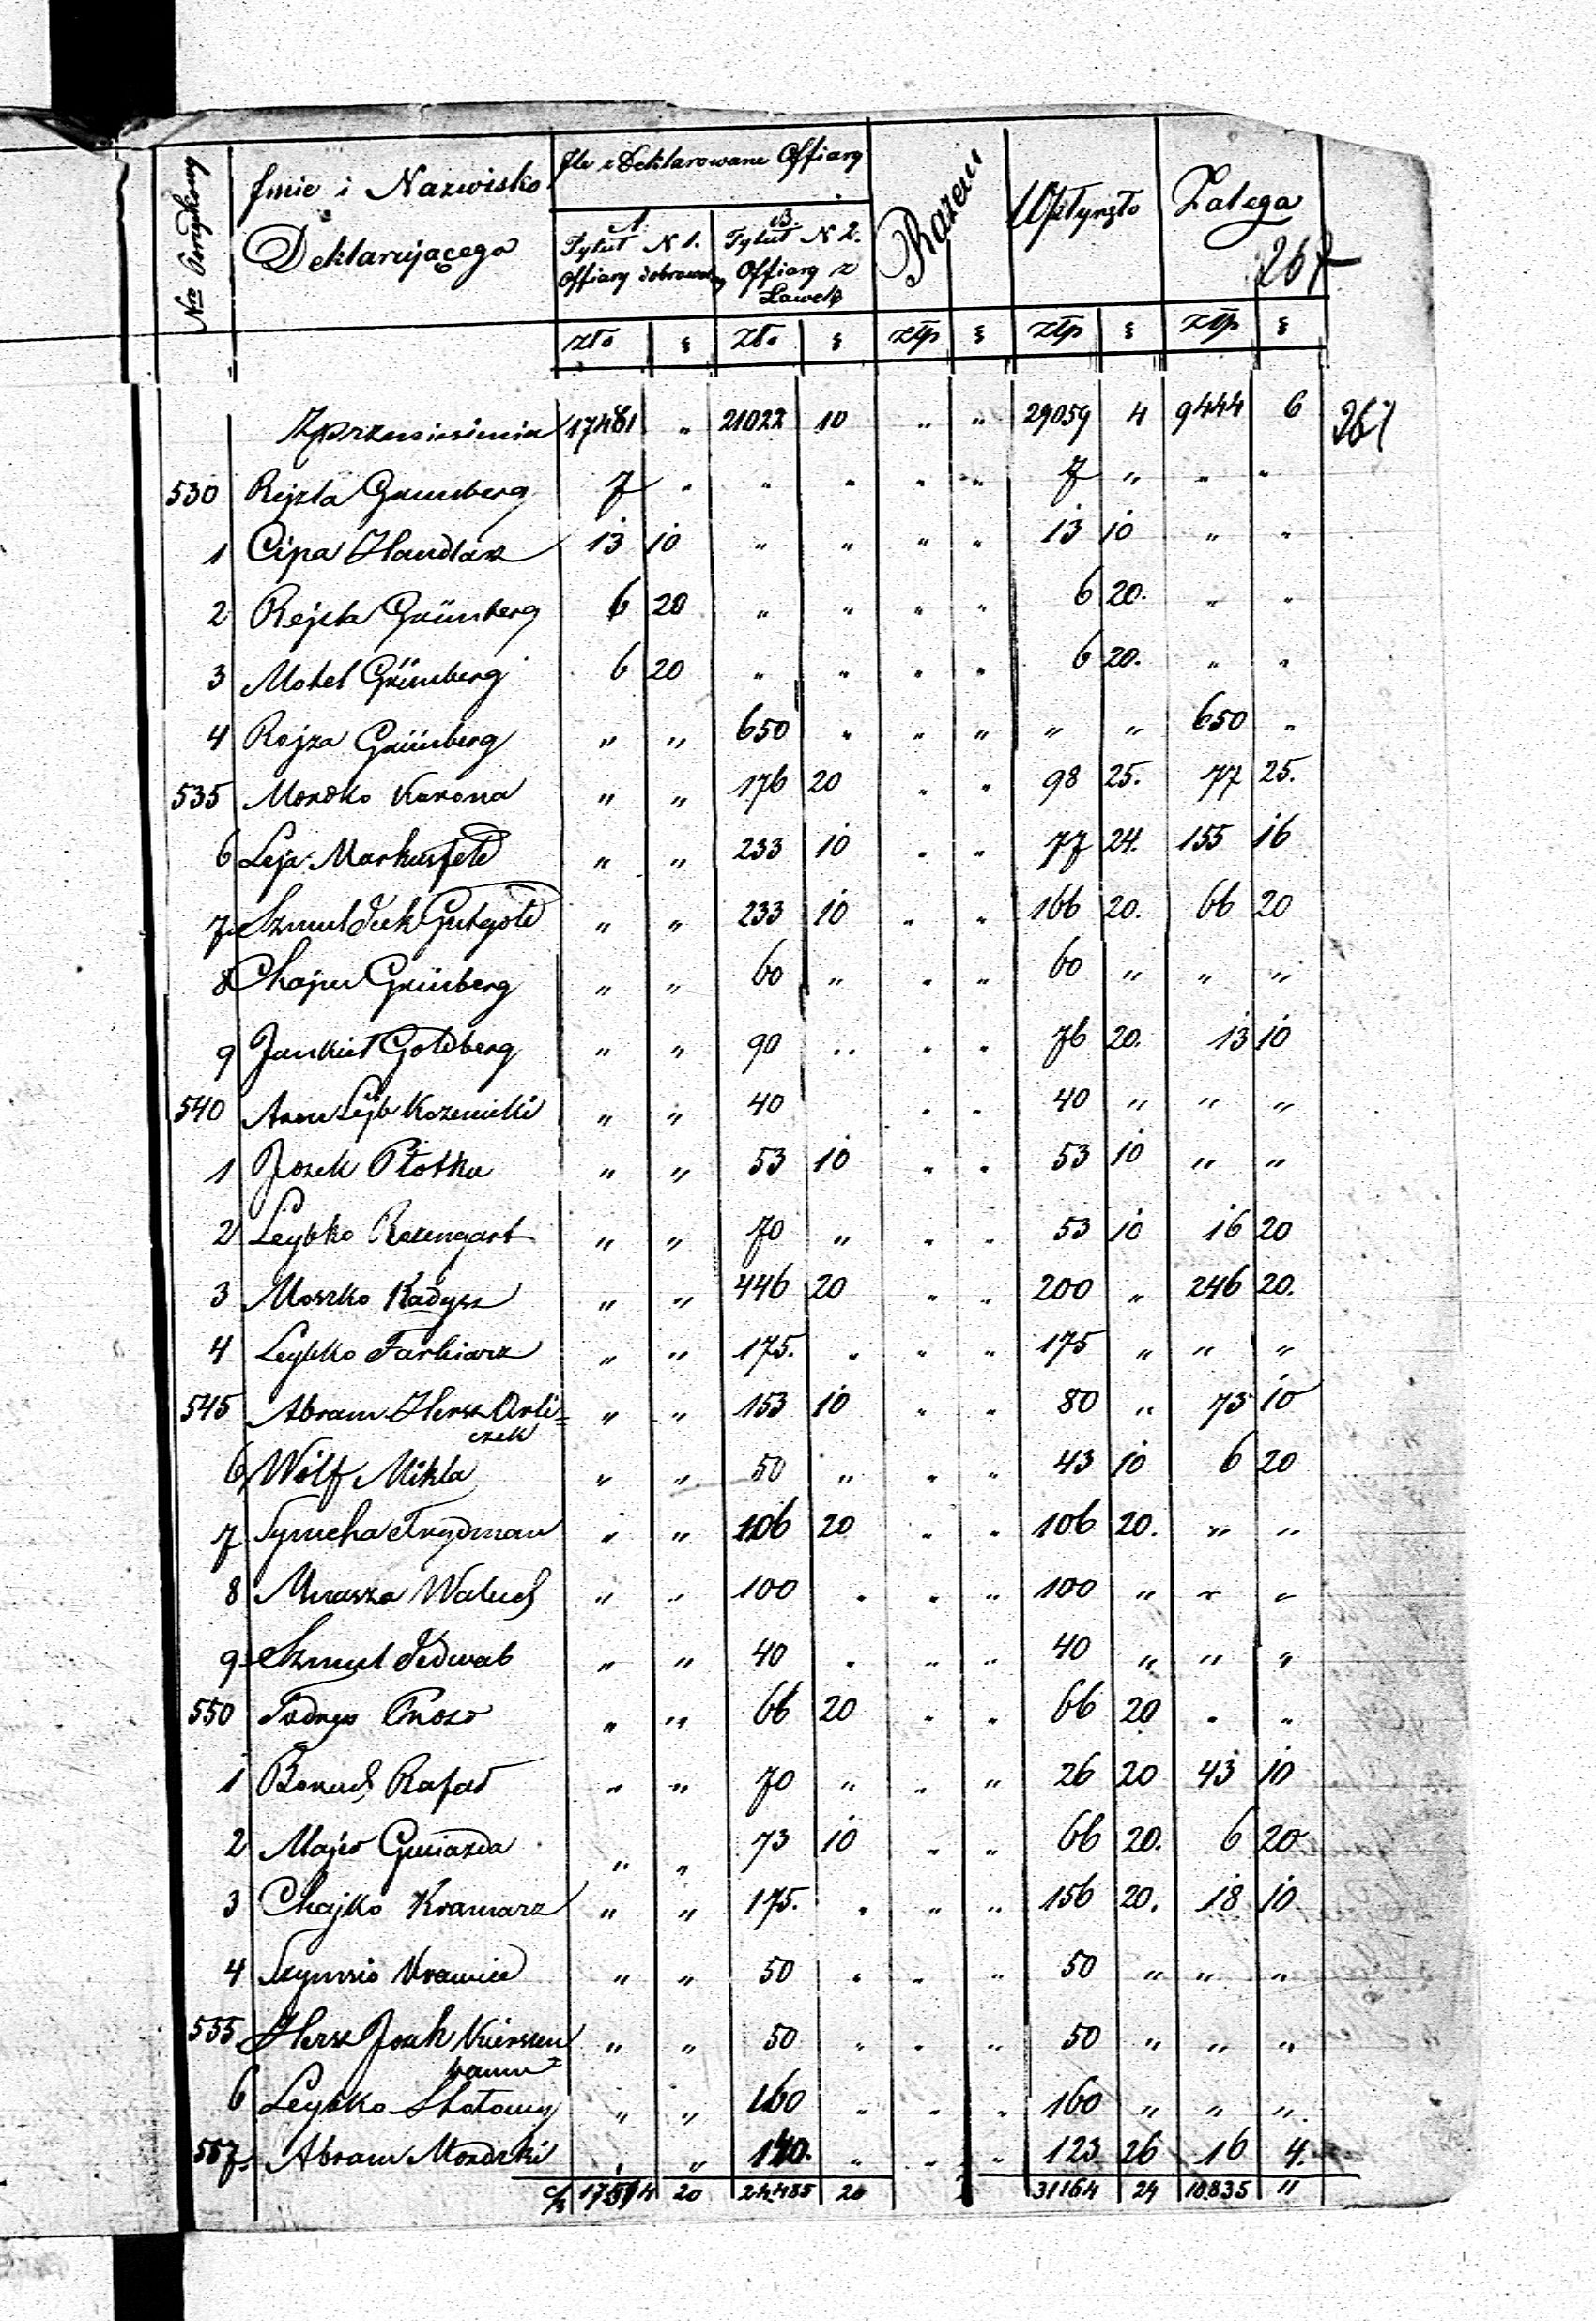 Nro Porządkowy
Imie i Nazwisko
Deklarującego
Ile zDeklarowane Offiary
A.
Tytuł N 1.
Offiary dobrowolny
B.
Tytuł N 2.
Offiary z
Ławek
Razem
Wpłynęło
Zalega
267
złp g złp g złp g złp g złp g
Z przeniesienia 17481 " 21022 10 " " 29059 4 9444 6
267
530 Rejzla Grunberg 7 " " " " " 7 " " "
1 Cipa Handlarz 13 10 " " " " 13 10 " "
2 Rejzla Grünberg 6 20 " " " " 6 20. " "
3 Motel Grünberg 6 20 " " " " 6 20. " "
4 Rojza Grünberg " " 650 " " " " " 650 "
535 Mordko Karona " " 176 20 " " 98 25. 77 25.
6 Leja Markusfeld " " 233 10 " " 77 24. 155 16
7. Szmul Icek Gutgold " " 233 10 " " 166 20. 66 20
8 Chajm Grünberg " " 60 " " " 60 " " "
9 Jankiel Goldberg " " 90 " " " 76 20. 13 10
540 Aron Lejb Kozenicki " " 40 " " 40 " " "
1 Josek Płotka " " 53 10 " " 53 10 " "
2 Leybko Rozengart " " 70 " " " 53 10 16 20
3 Moszko Kadysz " " 446 20 " " 200 " 246 20.
4 Leybko Farbiarz " " 175. " " " 175 " " "
545 Abram Hersz Orli=
czek " " 153 10 " " 80 " 73 10
6 Wolf Mikla " " 50 " " " 43 10 6 20
7 Symcha Frydman " " 106 20 " " 106 20. " "
8 Waluch " " 100 " " " 100 " " "
9 Szmul Jedwab " " 40 " " " 40 " " "
550 Todrys " " 66 20 " " 66 20 " "
1 Rafał " " 70 " " " 26 20 43 10
2 Majer Gwiazda " " 73 10 " " 66 20. 6 20
3 Chajko Kramarz " " 175. " " " 156 20. 18 10
4 Szymsio Krawiec " " 50 " " " 50 " " "
555 Hersz Josek Kierszen
baum " " 50 " " " 50 " " "
6 Leybko Złotowy " " 160 " " " 160 " " "
557. Abram Mordzki " " 140. " " " 123 26 16 4.
17514 20 24.485 20 31164 24 10.835 "